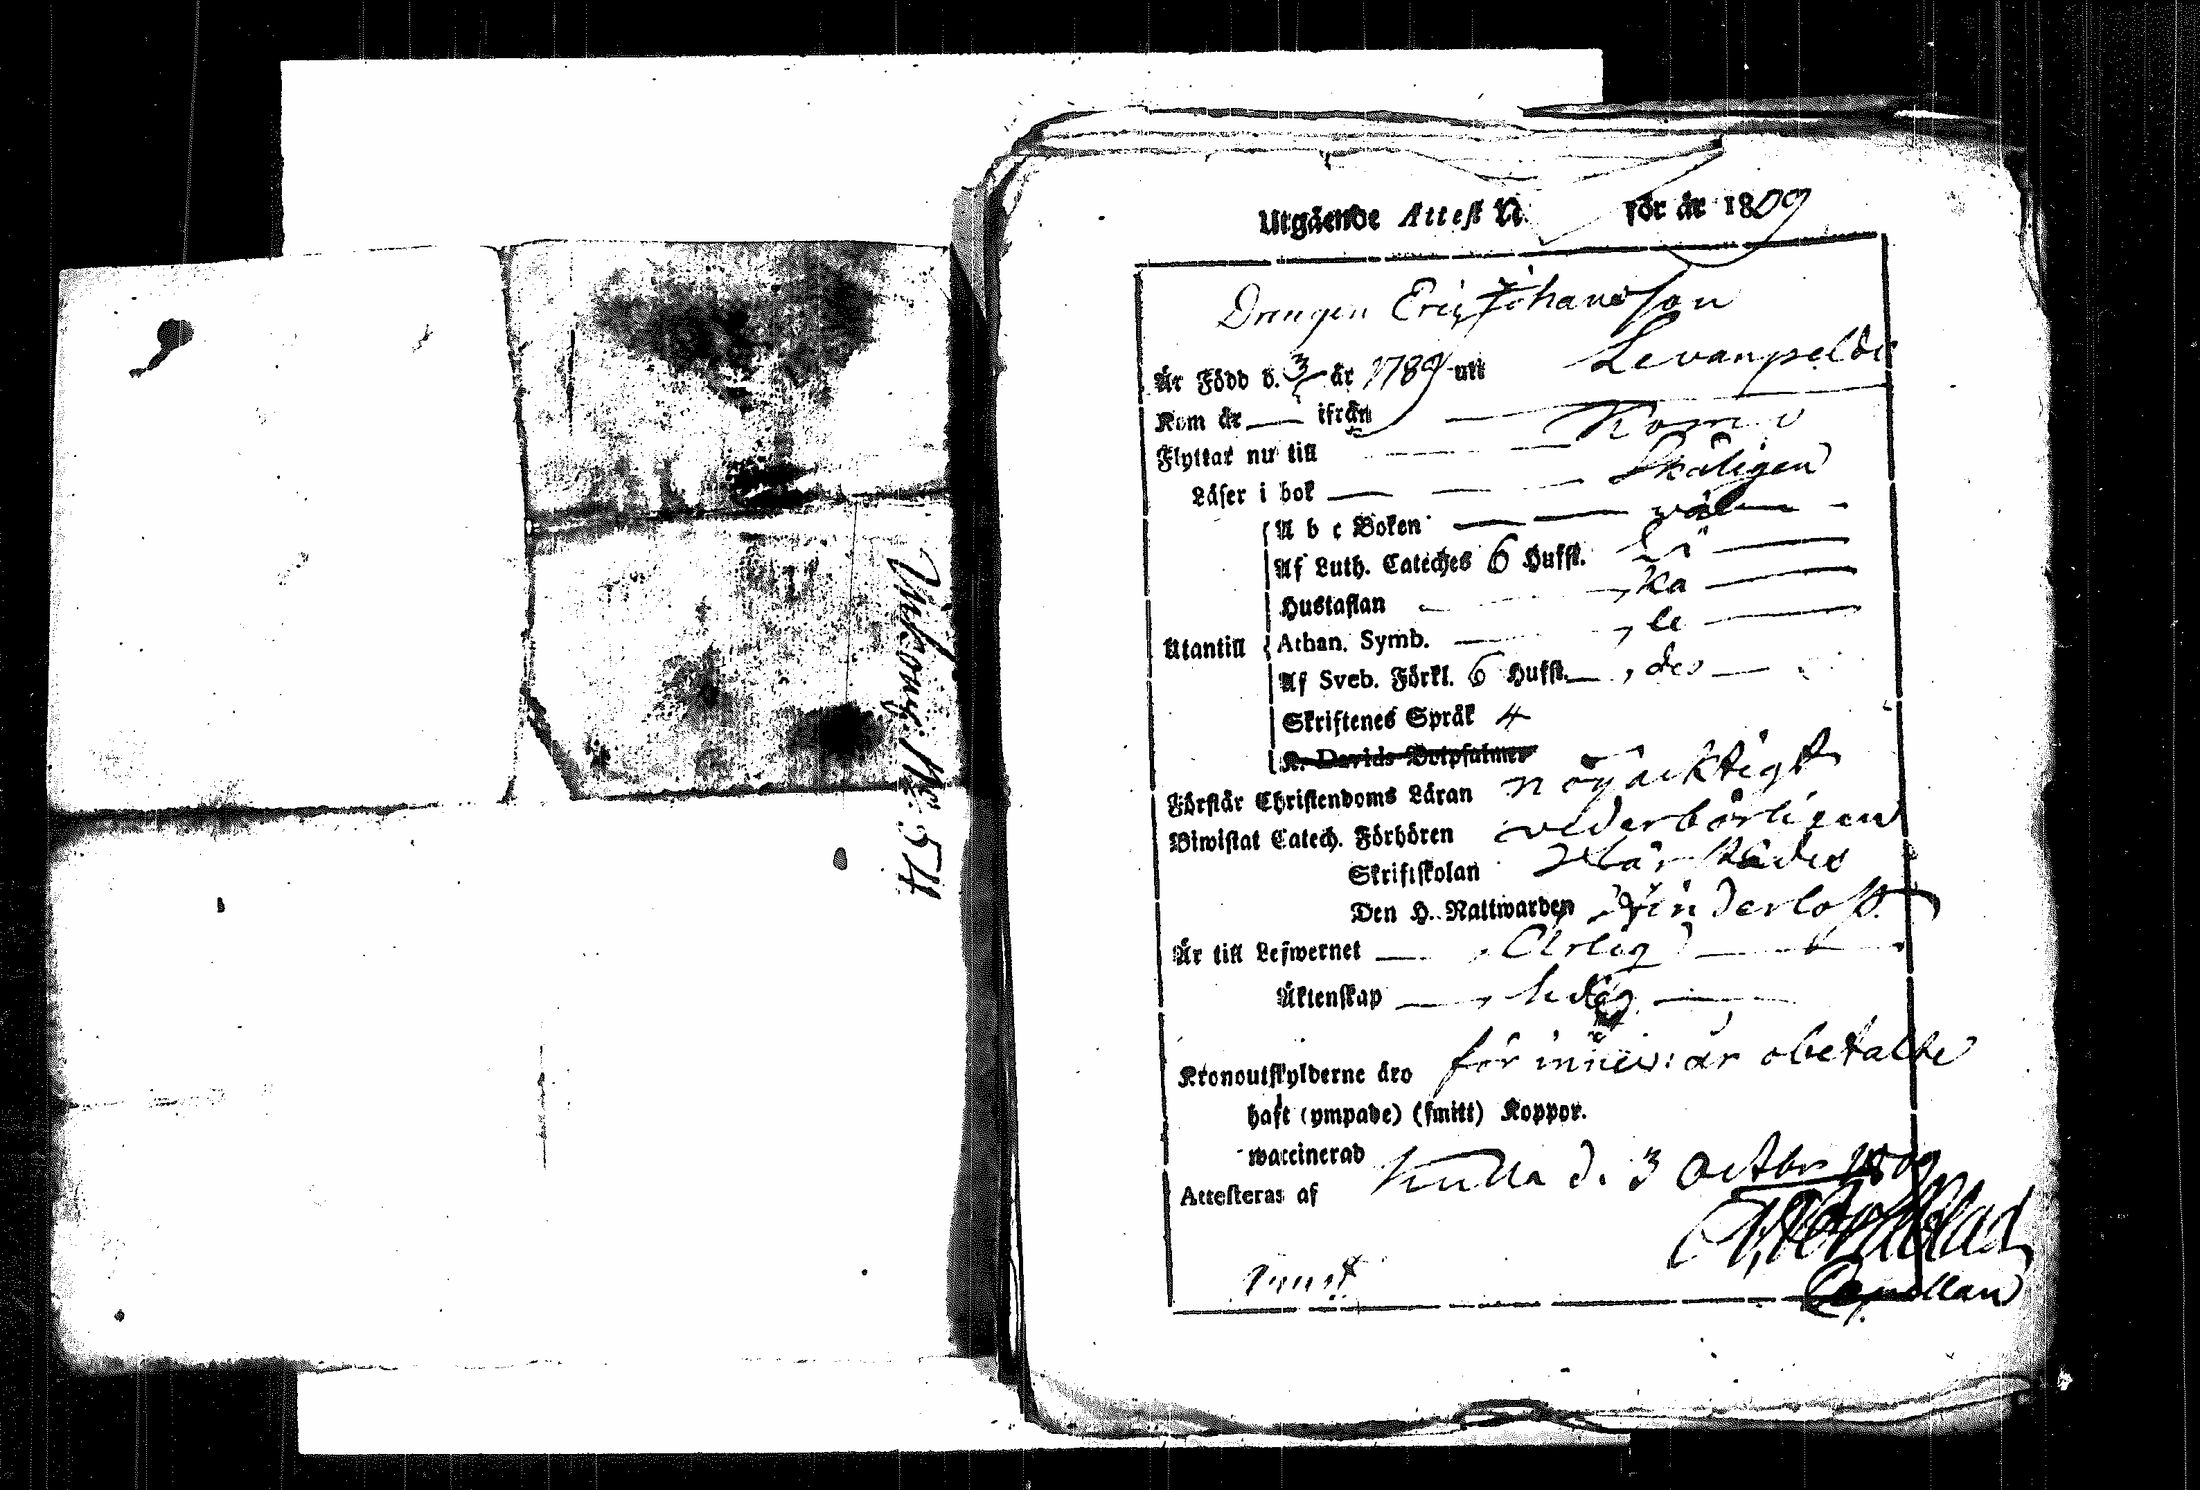 Utgående Attest N. för år 1809
Drengen Eric Johansson
Är Född d. 3/5 år 1789 uti Levanpelde
Kom år — ifrån — —
Flyttar nu till — — Komo
Läser i bok — — — Skäligen
A b c Boken — — wäl — -
Af Luth. Cateches 6 Hufst.
Hustaflan — , ka —
Utantill Athan. Symb. — , le —
Af Sveb. Förkl. 6 Hufst. — , des —
Skriftenes Språk 4
K. Davids Botpsalmer
Förstår Christendoms Läran nöjacktigt
Biwistat Catech. Förhören vederbörligen
Skriftskolan
Den H. Nattwarden
Är till Lefwernet — , Ärlig — —
Äktenskap — , ledig —
Kronoutskylderne äro för innev: år obetalte
haft (ympade) (smitt) Koppor.
waccinerad
Attesteras af Kulla d. 3 Octbr 1809
Capellan
No 54